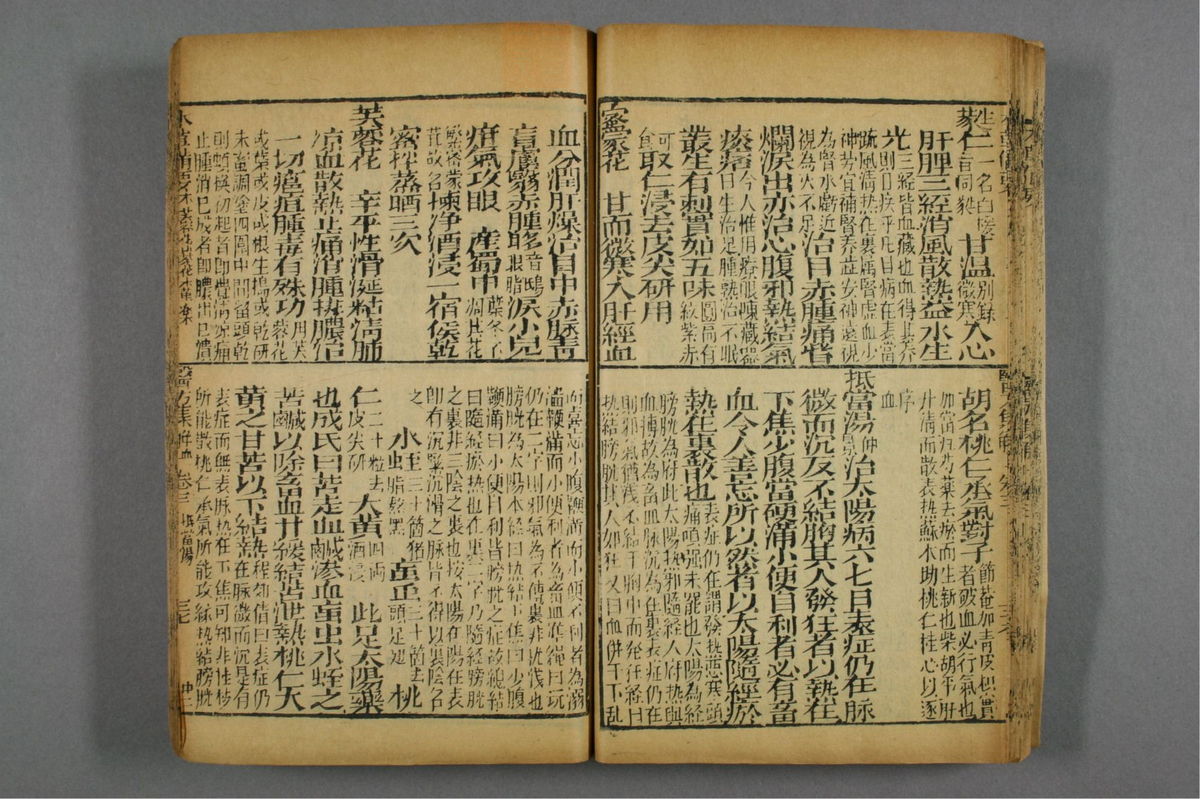 蕤仁
甘溫
入心
肝脾三經消風散熱益水生
光
三經皆血藏也血得其養則目疾平凡目病在表當
疏風清熱在裏屬腎虛血少
神勞宜補腎養血安神遠視
為腎水虧近
視為火不足
治目赤腫痛眥
爛淚出亦治心腹邪熱結氣
痰痞
今人惟用療眼陳藏器
曰生治足睡熟治不眠
叢生有刺實如五味
圓扁有紋紫赤
可食
取仁浸去皮尖研用
密蒙花 甘而微寒入肝經血
胡名桃仁承氣對子
血
抵當湯
仲景
治太陽病六七日表症仍在脈
微而沉反不結胸其人發狂者以熱在
下焦少腹當硬滿小便自利者必有畜
血令人善忘所以然者以太陽隨經瘀
熱在裏故也
表症仍在謂發熱惡寒頭
痛項强未罷也太陽為經
膀胱為府此太陽熱邪隨經入府熱與
血搏故為畜血脉沉為在裏表症仍在
則邪氣猶淺不結于胸中而發狂經曰
熱結膀胱其人如狂又曰血併于下亂
血分潤肝燥治目中赤脉青
盲膚翳赤腫眵
音鴟眼脂
淚小兒
疳氣攻眼 產蜀中
葉冬不凋其花
繁密蒙茸故名
揀淨酒浸一宿候乾
蜜拌蒸晒三次
芙蓉花 辛平性滑涎粘清肺
涼血散熱止痛消腫排膿治
一切癰疽腫毒有殊功
用芙蓉花
或葉或皮或根生搗或乾研
末蜜調塗四圍中間留頭乾
則頻換初起者即覺清涼痛
止腫消已成者即膿出已潰
而喜忘小腹鞕滿而小便不利者為溺
澁鞕滿而小便利者為畜血準繩曰玩
仍在二字則邪氣為不傳裏非犹淺也
膀胱為太陽本經曰熱結下焦曰少腹
鞕滿曰小便自利皆膀胱之症故總結
曰隨經瘀熱也在裏二字乃隨經膀胱
之裏非三陰之裏也按太陽在陽在表
即有沉緊沉滑之脉皆不得以裏陰名
之
水蛭
三十箇猪脂熬黑
䖟虫
三十箇去頭足翅
桃
仁
二十粒去皮尖研
大黃
四兩酒浸
此足太陽藥
也成氏曰苦走血鹹滲血䖟虫水蛭之
苦鹹以除畜血甘緩結苦泄熱桃仁大
黃之甘苦以下結熱
程郊倩曰表症仍
在脉微而沉是有
表症而無表脉熱在下焦可知非桂枝
所能散桃仁承氣所能攻縁熱結膀胱
醫方集解 卷三 抵當湯
三七